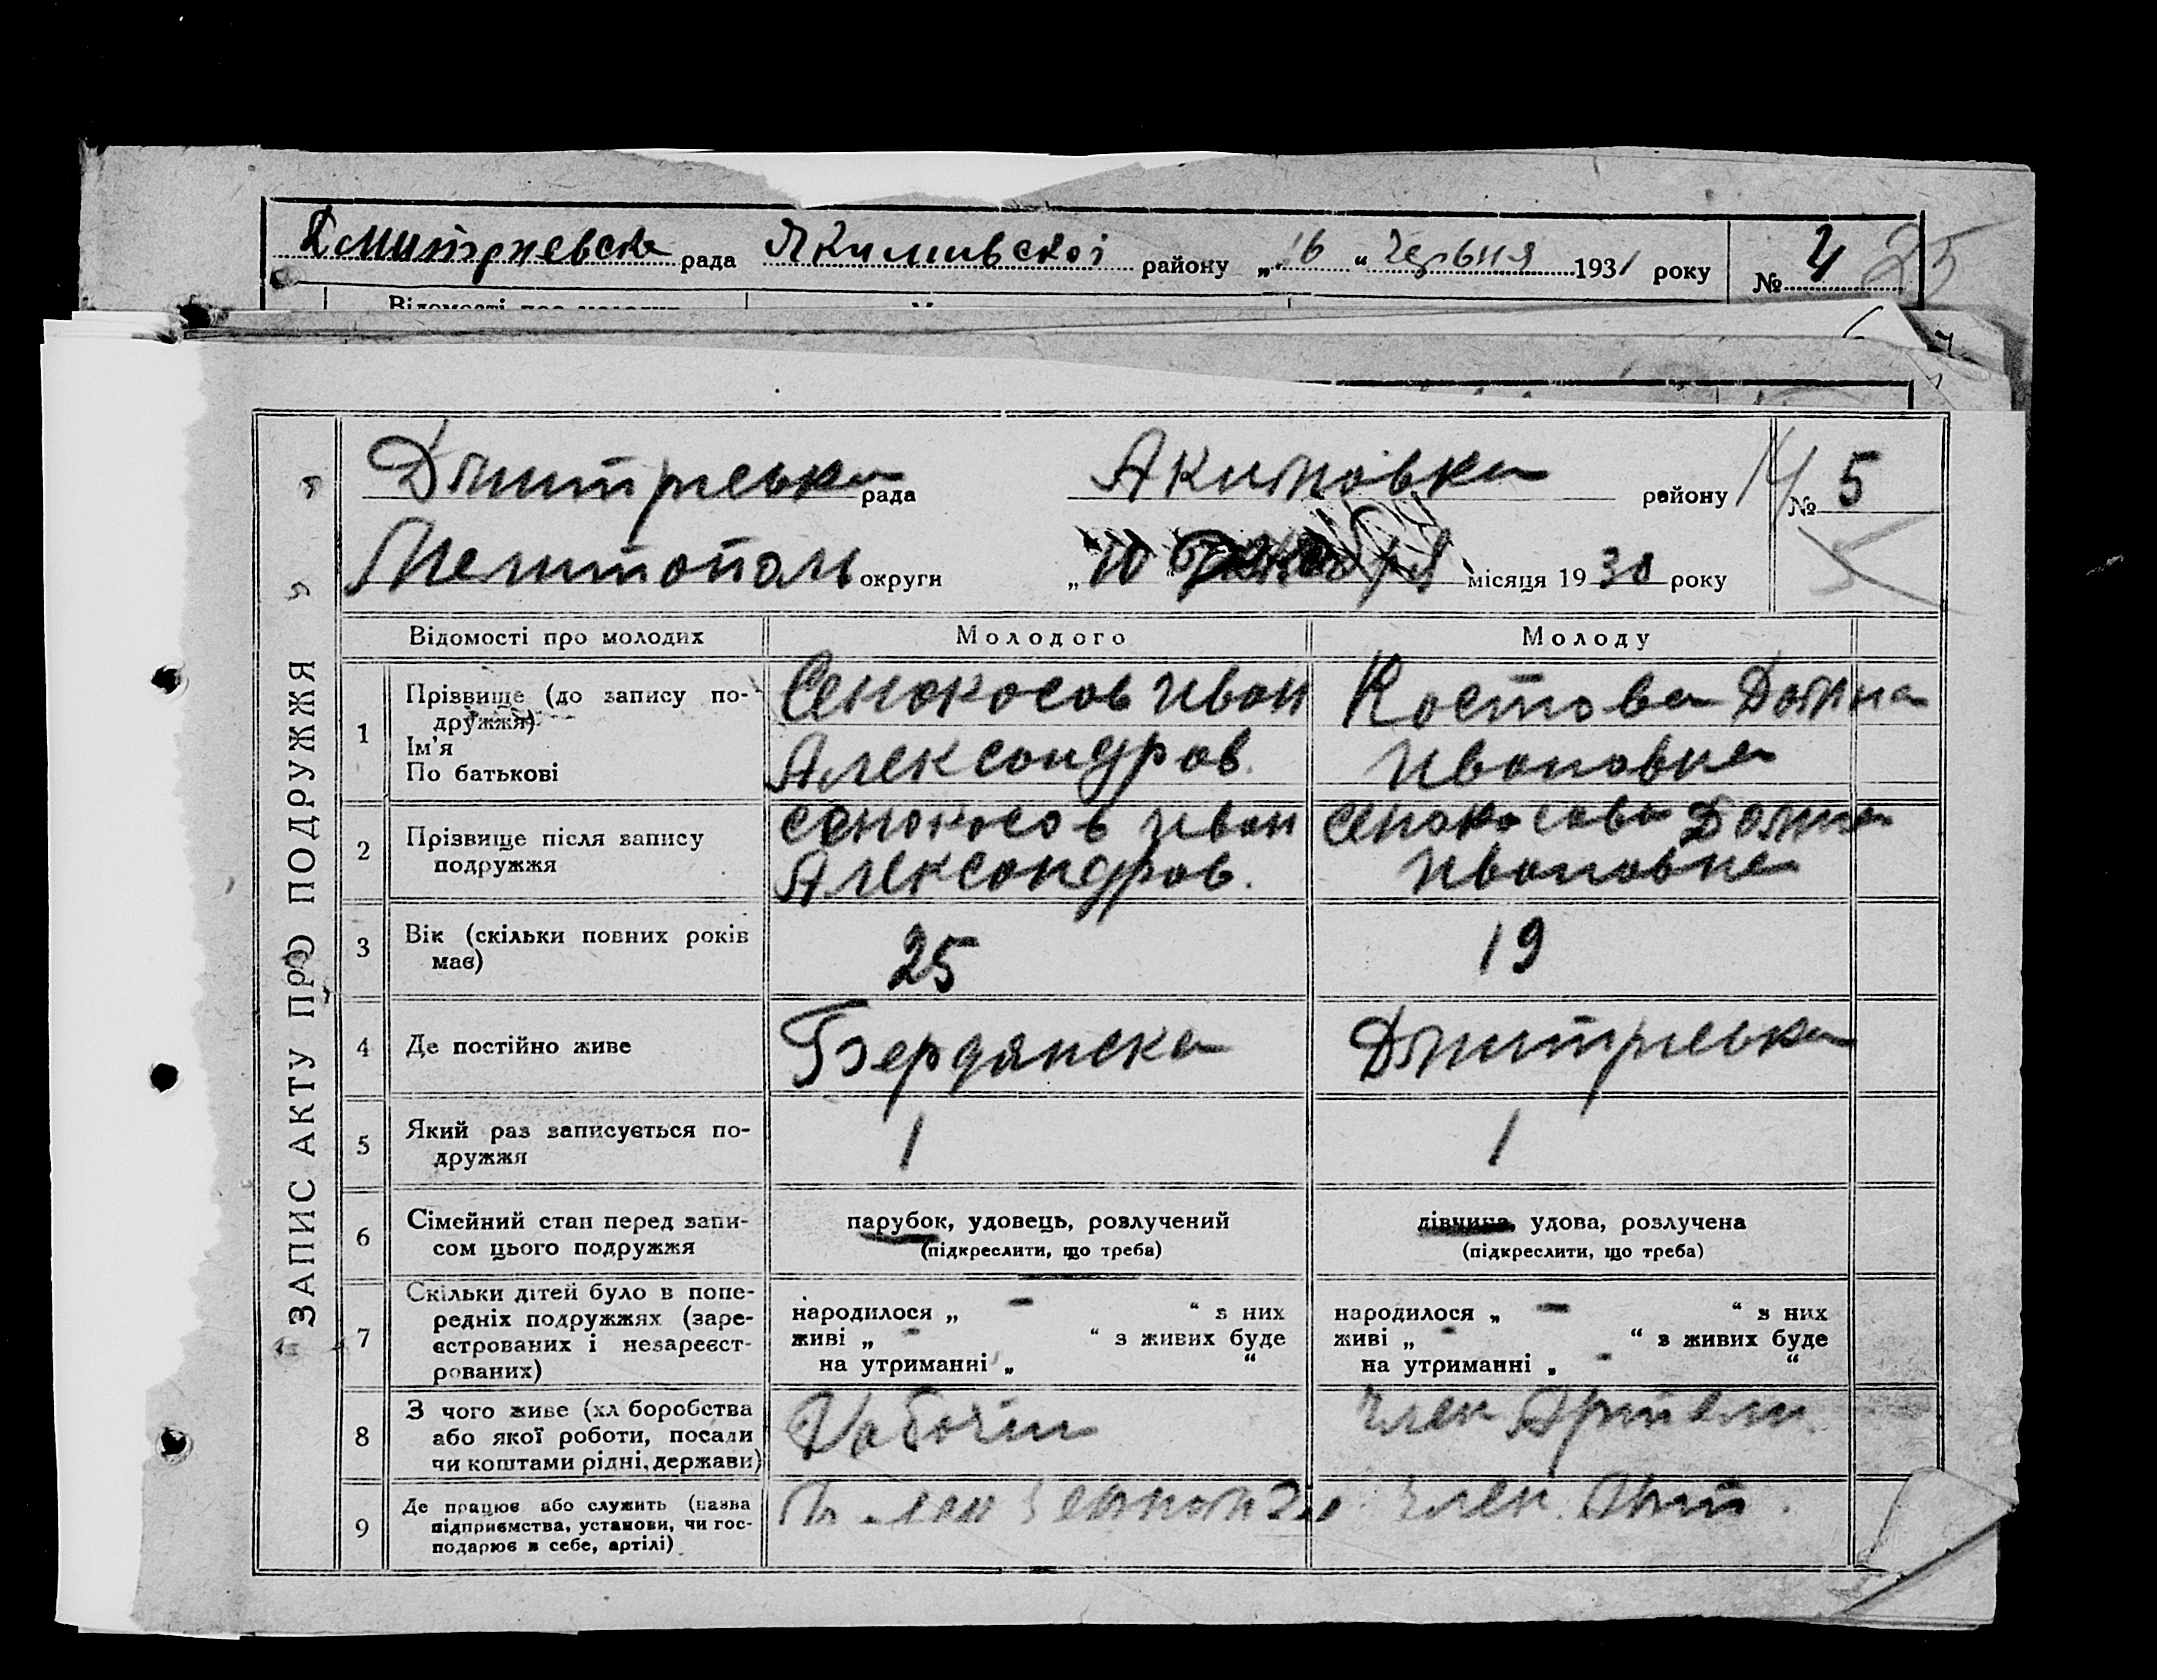 Дмитриевска рада Якимивскоі району „ 16 “ Червня 1931 року № 4 25
ЗАПИС АКТУ ПРО ПОДРУЖЖЯ
Дмитриевка рада Акимовка району № 5
Мелитополь округи „ 10 “ місяця 1930 року 5
Відомості про молодих Молодого Молоду
1 Прізвище (до запису по-
дружжя)
Ім'я
По батькові
Сенокосов Иван
Александров.
Костова Домна
Ивановна
2 Прізвище після запису
подружжя
Сенокосов Иван
Александров.
Сенокосова Домна
Ивановна
3 Вік (скільки повних років
має)
25 19
4 Де постійно живе Бердянска Дмитриевка
5 Який раз записується по-
дружжя
1 1
6 Сімейний стан перед запи-
сом цього подружжя
парубок, удовець, розлучений
(підкреслити, що треба)
дівчина, удова, розлучена
(підкреслити, що треба)
7 Скільки дітей було в попе-
редніх подружжях (заре-
єстрованих і незареєст-
рованих)
народилося „ — “ з них
живі „ - “ з живих буде
на утриманні „ “
народилося „ — “ з них
живі „ - “ з живих буде
на утриманні „ - “
8 З чого живе (хліборобства
або якої роботи, посади
чи коштами рідні, держави)
Рабочии
Член Артели.
9 Де працює або служить (назва
підприємства, установи, чи гос-
подарює в себе, артілі)
Член Арт.